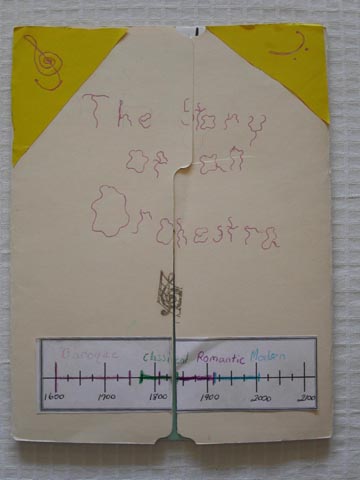 The Story
of an
Orchestra
Baroque Classical Romantic Modern
1600 1700 1800 1900 2000 2100